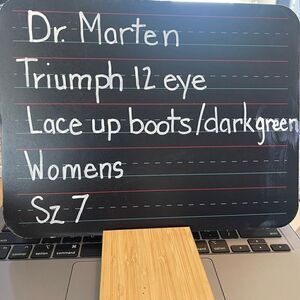 Dr. Marten
Triumph 12 eye
Lace up boots/darkgreen
Womens
Sz 7